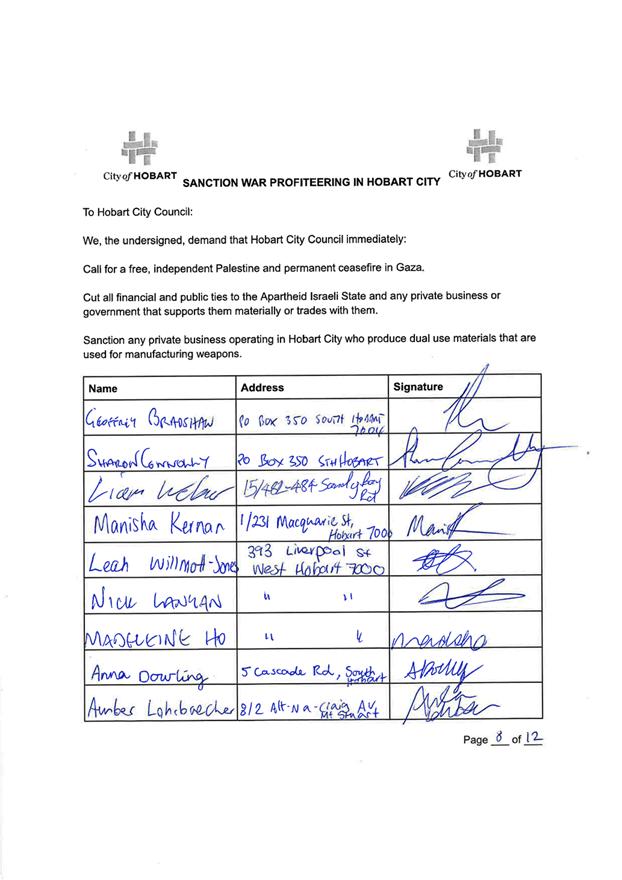 City of HOBART
City of HOBART
SANCTION WAR PROFITEERING IN HOBART CITY
To Hobart City Council:
We, the undersigned, demand that Hobart City Council immediately:
Call for a free, independent Palestine and permanent ceasefire in Gaza.
Cut all financial and public ties to the Apartheid Israeli State and any private business or
government that supports them materially or trades with them.
Sanction any private business operating in Hobart City who produce dual use materials that are
used for manufacturing weapons.
Name Address Signature
GEOFFREY BRADSHAW PO BOX 350 SOUTH HOBART
7004
SHARON CONNOLLY PO BOX 350 STH HOBART
Liam 15/482-484 Sandy Bay
Rd
Manisha Kernan 1/231 Macquarie St,
Hobart 7000
Leah Willmott-Jones 393 Liverpool St
West Hobart 7000
NICK LANYAN " "
MADELEINE HO " "
Anna Dowling 5 Cascade Rd, South
Hobart
Amber 8/2 Alt-Na-Craig Av
Mt Stuart
Page 8 of 12